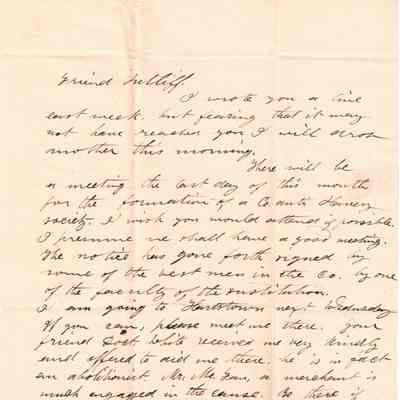 Friend Sutliff,
I wrote you a line
last week. but fearing that it may
not have reached you I will drop
another this morning.
There will be
a meeting the last day of this month
for the formation of a Co. anti Slavery
society. I wish you would attend if possible.
I presume we shall have a good meeting.
The notice has gone forth signed by
some of the best men in the Co. by one
of the faculty of the institution.
I am going to Hartstown next Wednesday
If you can, please meet me there. your
friend Doct White received me very kindly
and offered to aid me there. he is in fact
an abolitionist. Mr. Mc a merchant is
much engaged in the cause. Be there if